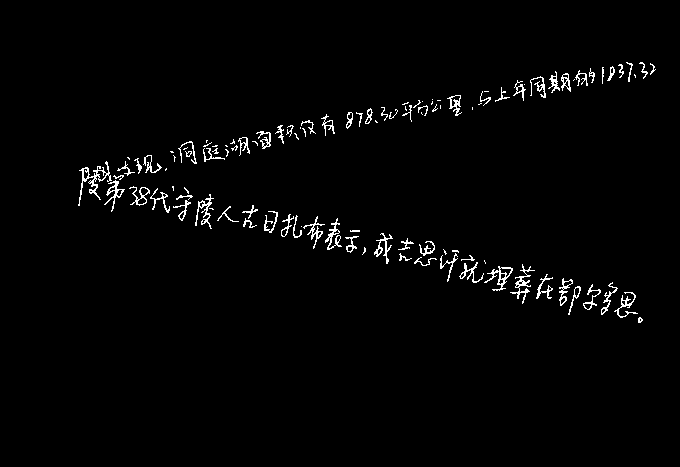 发现，洞庭湖面积仅有878.30平方公里，与上年同期的1837.32
陵第38代守陵人古日扎布表示，成吉思汗就埋葬在鄂尔多思。